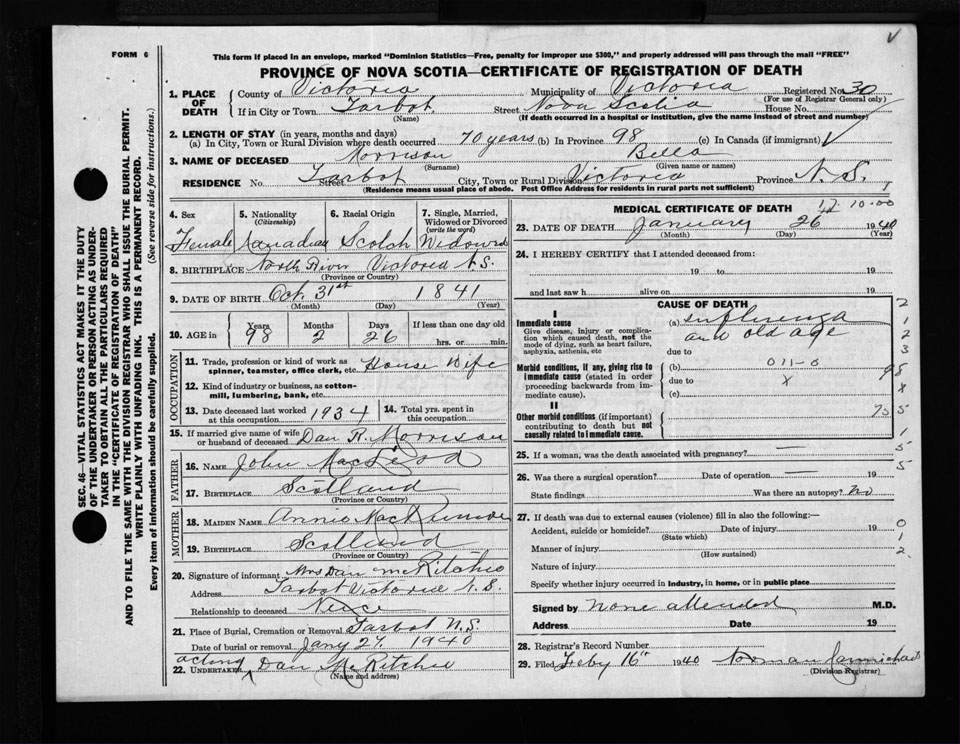 FORM 6
This form if placed in an envelope, marked "Dominion Statistics—Free, penalty for improper use $300," and properly addressed will pass through the mail "FREE"
PROVINCE OF NOVA SCOTIA—CERTIFICATE OF REGISTRATION OF DEATH
1. PLACE OF DEATH
County of Victoria Municipality of Victoria Registered No. 30
(For use of Registrar General only)
If in City or Town Tarbot Street Nova Scotia House No.
(Name) (If death occurred in a hospital or institution, give the name instead of street and number)
2. LENGTH OF STAY (in years, months and days)
(a) In City, Town or Rural Division where death occurred 70 years (b) In Province 98 (c) In Canada (if immigrant)
3. NAME OF DECEASED Morrison Bella
(Surname) (Given name or names)
RESIDENCE No. Street Tarbot City, Town or Rural Division Victoria Province N.S.
(Residence means usual place of abode. Post Office Address for residents in rural parts not sufficient)
4. Sex
Female
5. Nationality
(Citizenship)
Canadian
6. Racial Origin
Scotch
7. Single, Married, Widowed or Divorced
(write the word)
Widowed
8. BIRTHPLACE North River Victoria N.S.
(Province or Country)
9. DATE OF BIRTH Oct. 31st 1841
(Month) (Day) (Year)
10. AGE in
Years Months Days If less than one day old
98 2 26 hrs. or min.
OCCUPATION
11. Trade, profession or kind of work as spinner, teamster, office clerk, etc. House Wife
12. Kind of industry or business, as cotton-mill, lumbering, bank, etc.
13. Date deceased last worked at this occupation 1934
14. Total yrs. spent in this occupation
15. If married give name of wife or husband of deceased Dan R. Morrison
FATHER
16. NAME John MacLeod
17. BIRTHPLACE Scotland
(Province or Country)
MOTHER
18. MAIDEN NAME Annie
19. BIRTHPLACE Scotland
(Province or Country)
20. Signature of informant Mrs Dan McRitchie
Address Tarbot Victoria N.S.
Relationship to deceased Neice
21. Place of Burial, Cremation or Removal Tarbot N.S.
Date of burial or removal Jany 27, 1940
acting
22. UNDERTAKER Dan McRitchie
(Name and address)
MEDICAL CERTIFICATE OF DEATH
17 10-00
23. DATE OF DEATH January 26 1940
(Month) (Day) (Year)
24. I HEREBY CERTIFY that I attended deceased from:
19 to 19
and last saw h alive on 19
CAUSE OF DEATH
I
Immediate cause
Give disease, injury or complication which caused death, not the mode of dying, such as heart failure, asphyxia, asthenia, etc
(a) influenza
and old age
due to
Morbid conditions, if any, giving rise to immediate cause (stated in order proceeding backwards from immediate cause).
(b) 011-0
due to x
(c)
II
Other morbid conditions (if important) contributing to death but not causally related to immediate cause.
2
1
2
3
98
x
755
1
5
5
0
1
2
25. If a woman, was the death associated with pregnancy?
26. Was there a surgical operation? Date of operation 19
State findings Was there an autopsy? no
27. If death was due to external causes (violence) fill in also the following:—
Accident, suicide or homicide? Date of injury 19
(State which)
Manner of injury
(How sustained)
Nature of injury
Specify whether injury occurred in industry, in home, or in public place
Signed by none attended M.D.
Address Date 19
28. Registrar's Record Number
29. Filed Feby 16th 1940 Norman Carmichael
(Division Registrar)
SEC. 46—VITAL STATISTICS ACT MAKES IT THE DUTY
OF THE UNDERTAKER OR PERSON ACTING AS UNDER-
TAKER TO OBTAIN ALL THE PARTICULARS REQUIRED
IN THE "CERTIFICATE OF REGISTRATION OF DEATH"
AND TO FILE THE SAME WITH THE DIVISION REGISTRAR WHO SHALL ISSUE THE BURIAL PERMIT.
WRITE PLAINLY WITH UNFADING INK. THIS IS A PERMANENT RECORD.
Every item of information should be carefully supplied. (See reverse side for instructions.)